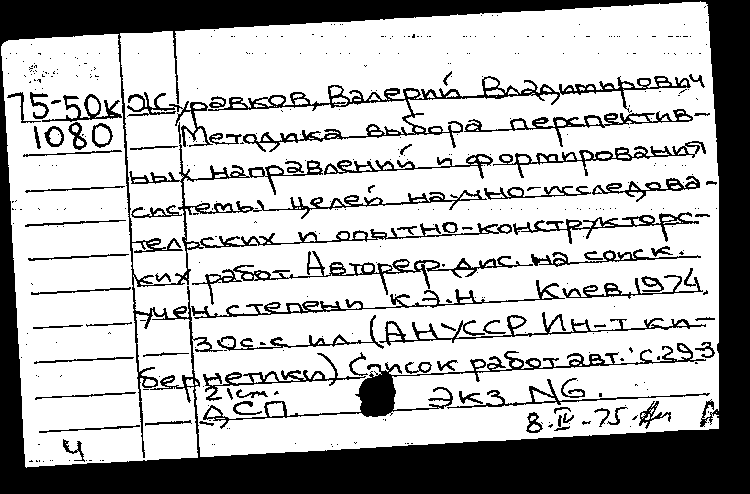 75-50к Журавков, Валерий Владимирович
1080 Методика выбора перспектив-
ных направлений и формирования
системы целей научно-исследова-
тельских и опытно-конструкторс-
ких работ. Автореф. дис. на соиск.
учен. степени к.э.н. Киев, 1974.
30с. с ил. (АН УССР. Ин-т ки-
бернетики) Список работ авт.: с.29-3
21см.
ДСП. Экз. №6.
8.IV-75.
4